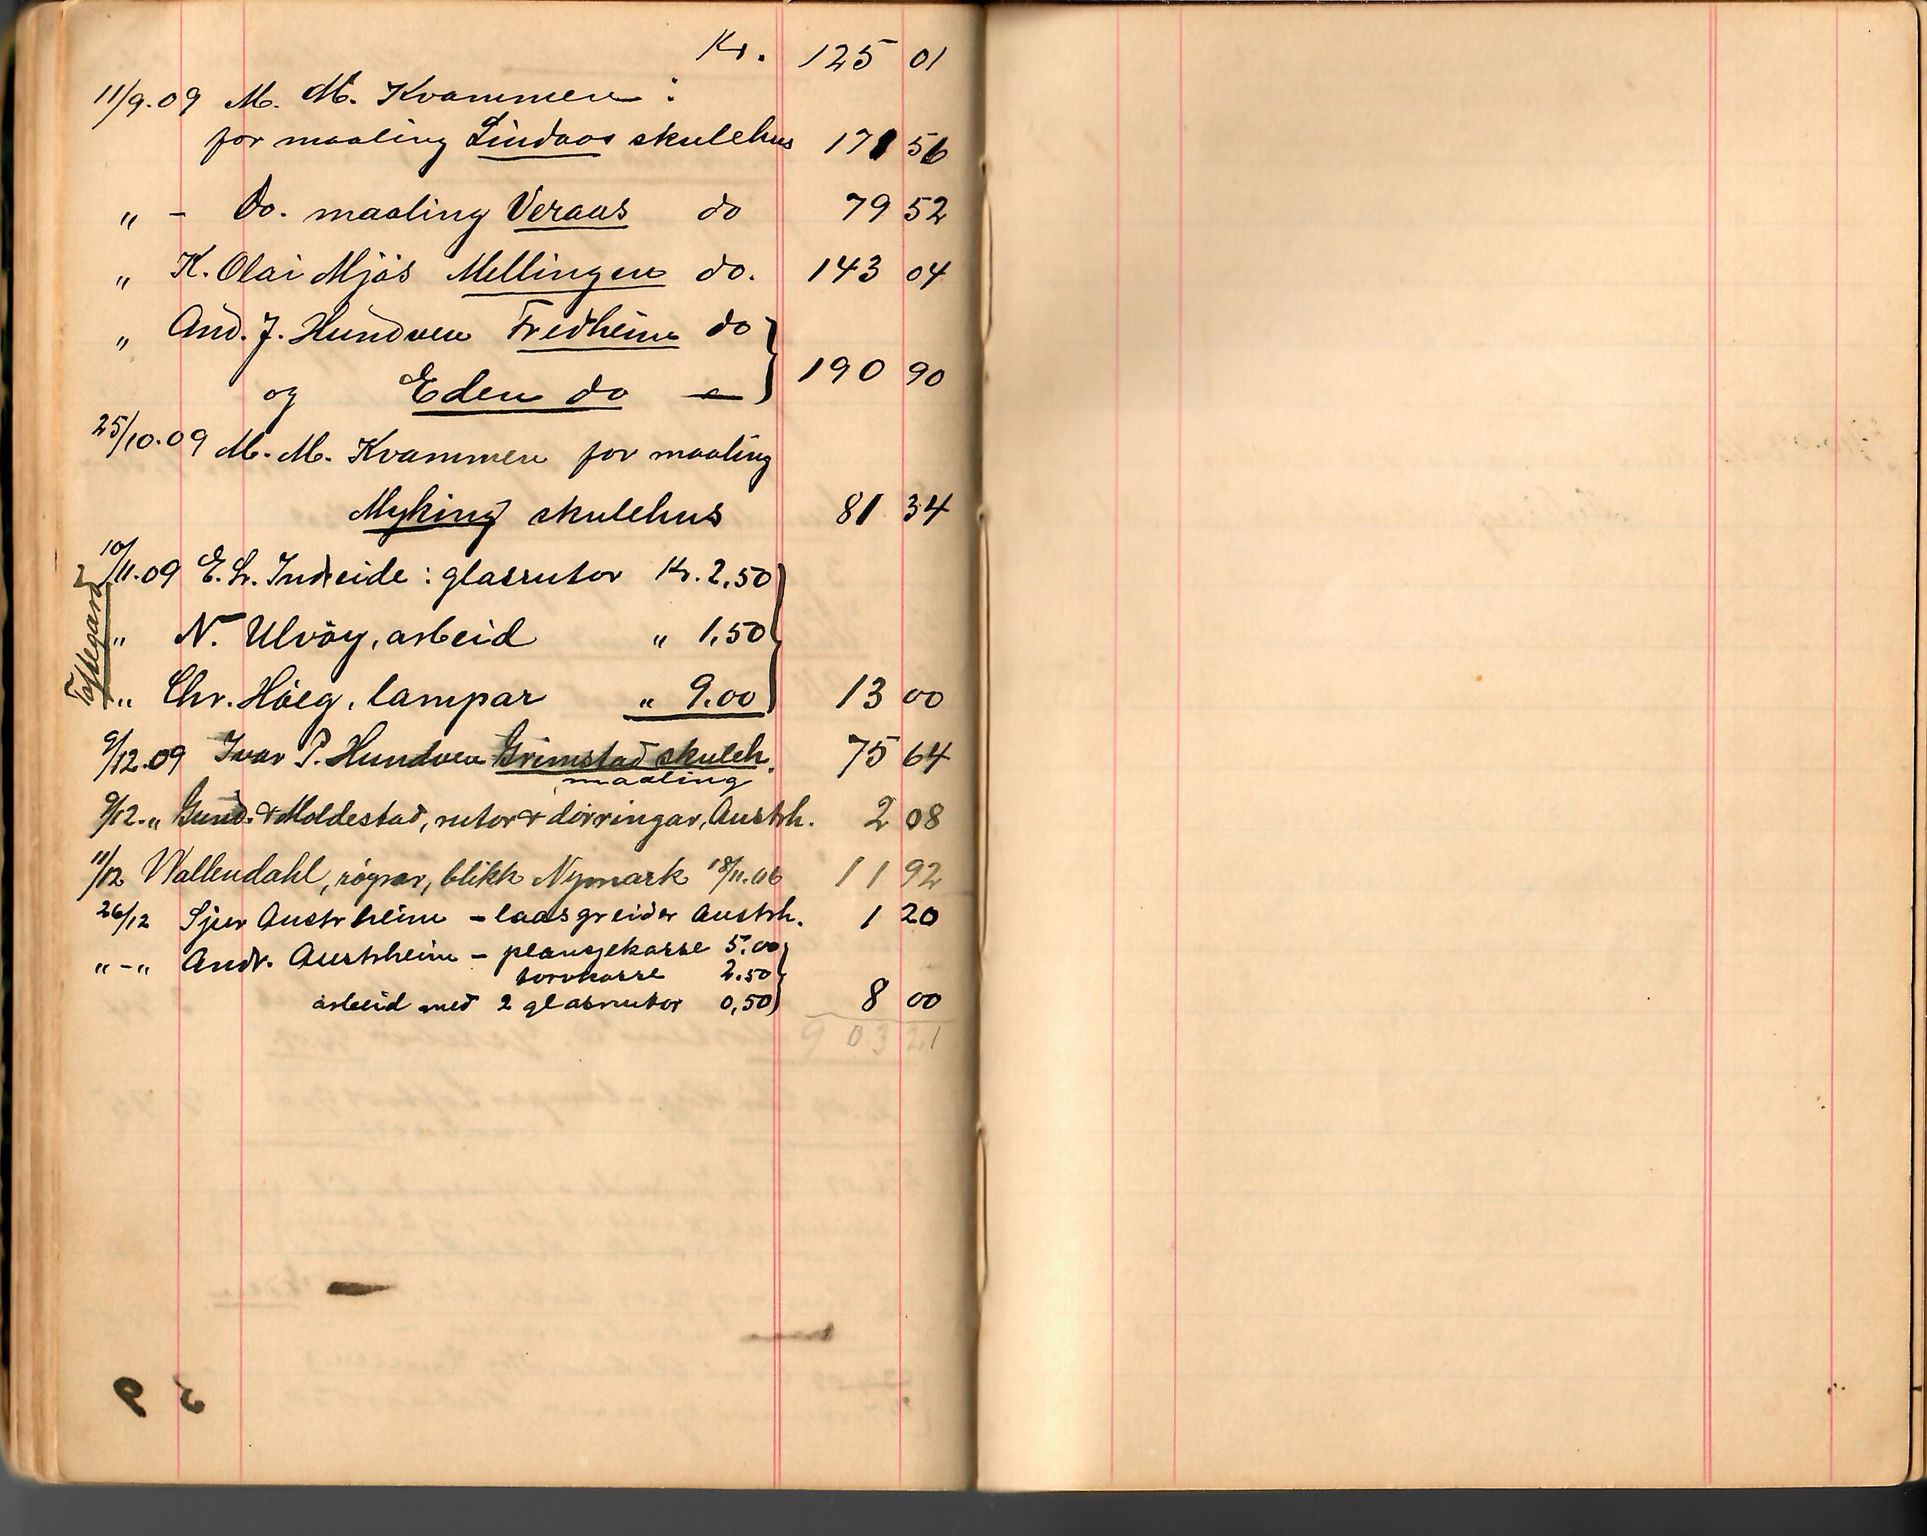 Kr. 125 01
11/9.09 M. M. Kvammen :
for maaling Lindaas skulehus 171 56
" - Do. maaling Veraas do 79 52
" K. Olai Mjøs Mellingen do. 143 04
" And. J. Hundven Fredheim do
og Eden do 190 90
25/10.09 M. M. Kvammen for maaling
Myking skulehus 81 34
10/11.09 E. L. Indreide : glasrutor Kr. 2,50
" N. Ulvöy, arbeid " 1,50
" Chr. Höeg, lampar " 9.00 13 00
Toftegard
9/12.09 Ivar P. Hundven Grimstad skuleh. 75 64
maaling
9/12." Gund. & Moldestad, rutor & dörringar, Austrh. 2 08
11/12 Wallendahl, röyrar, blikk Nymark 18/11.06 11 92
26/12 Sjur Austrheim - laasgreider Austrh. 1 20
" - " Andr. Austrheim - plansjekasse 5.00
torvkasse 2.50
arbeid med 2 glasrutor 0,50 8 00
903 21